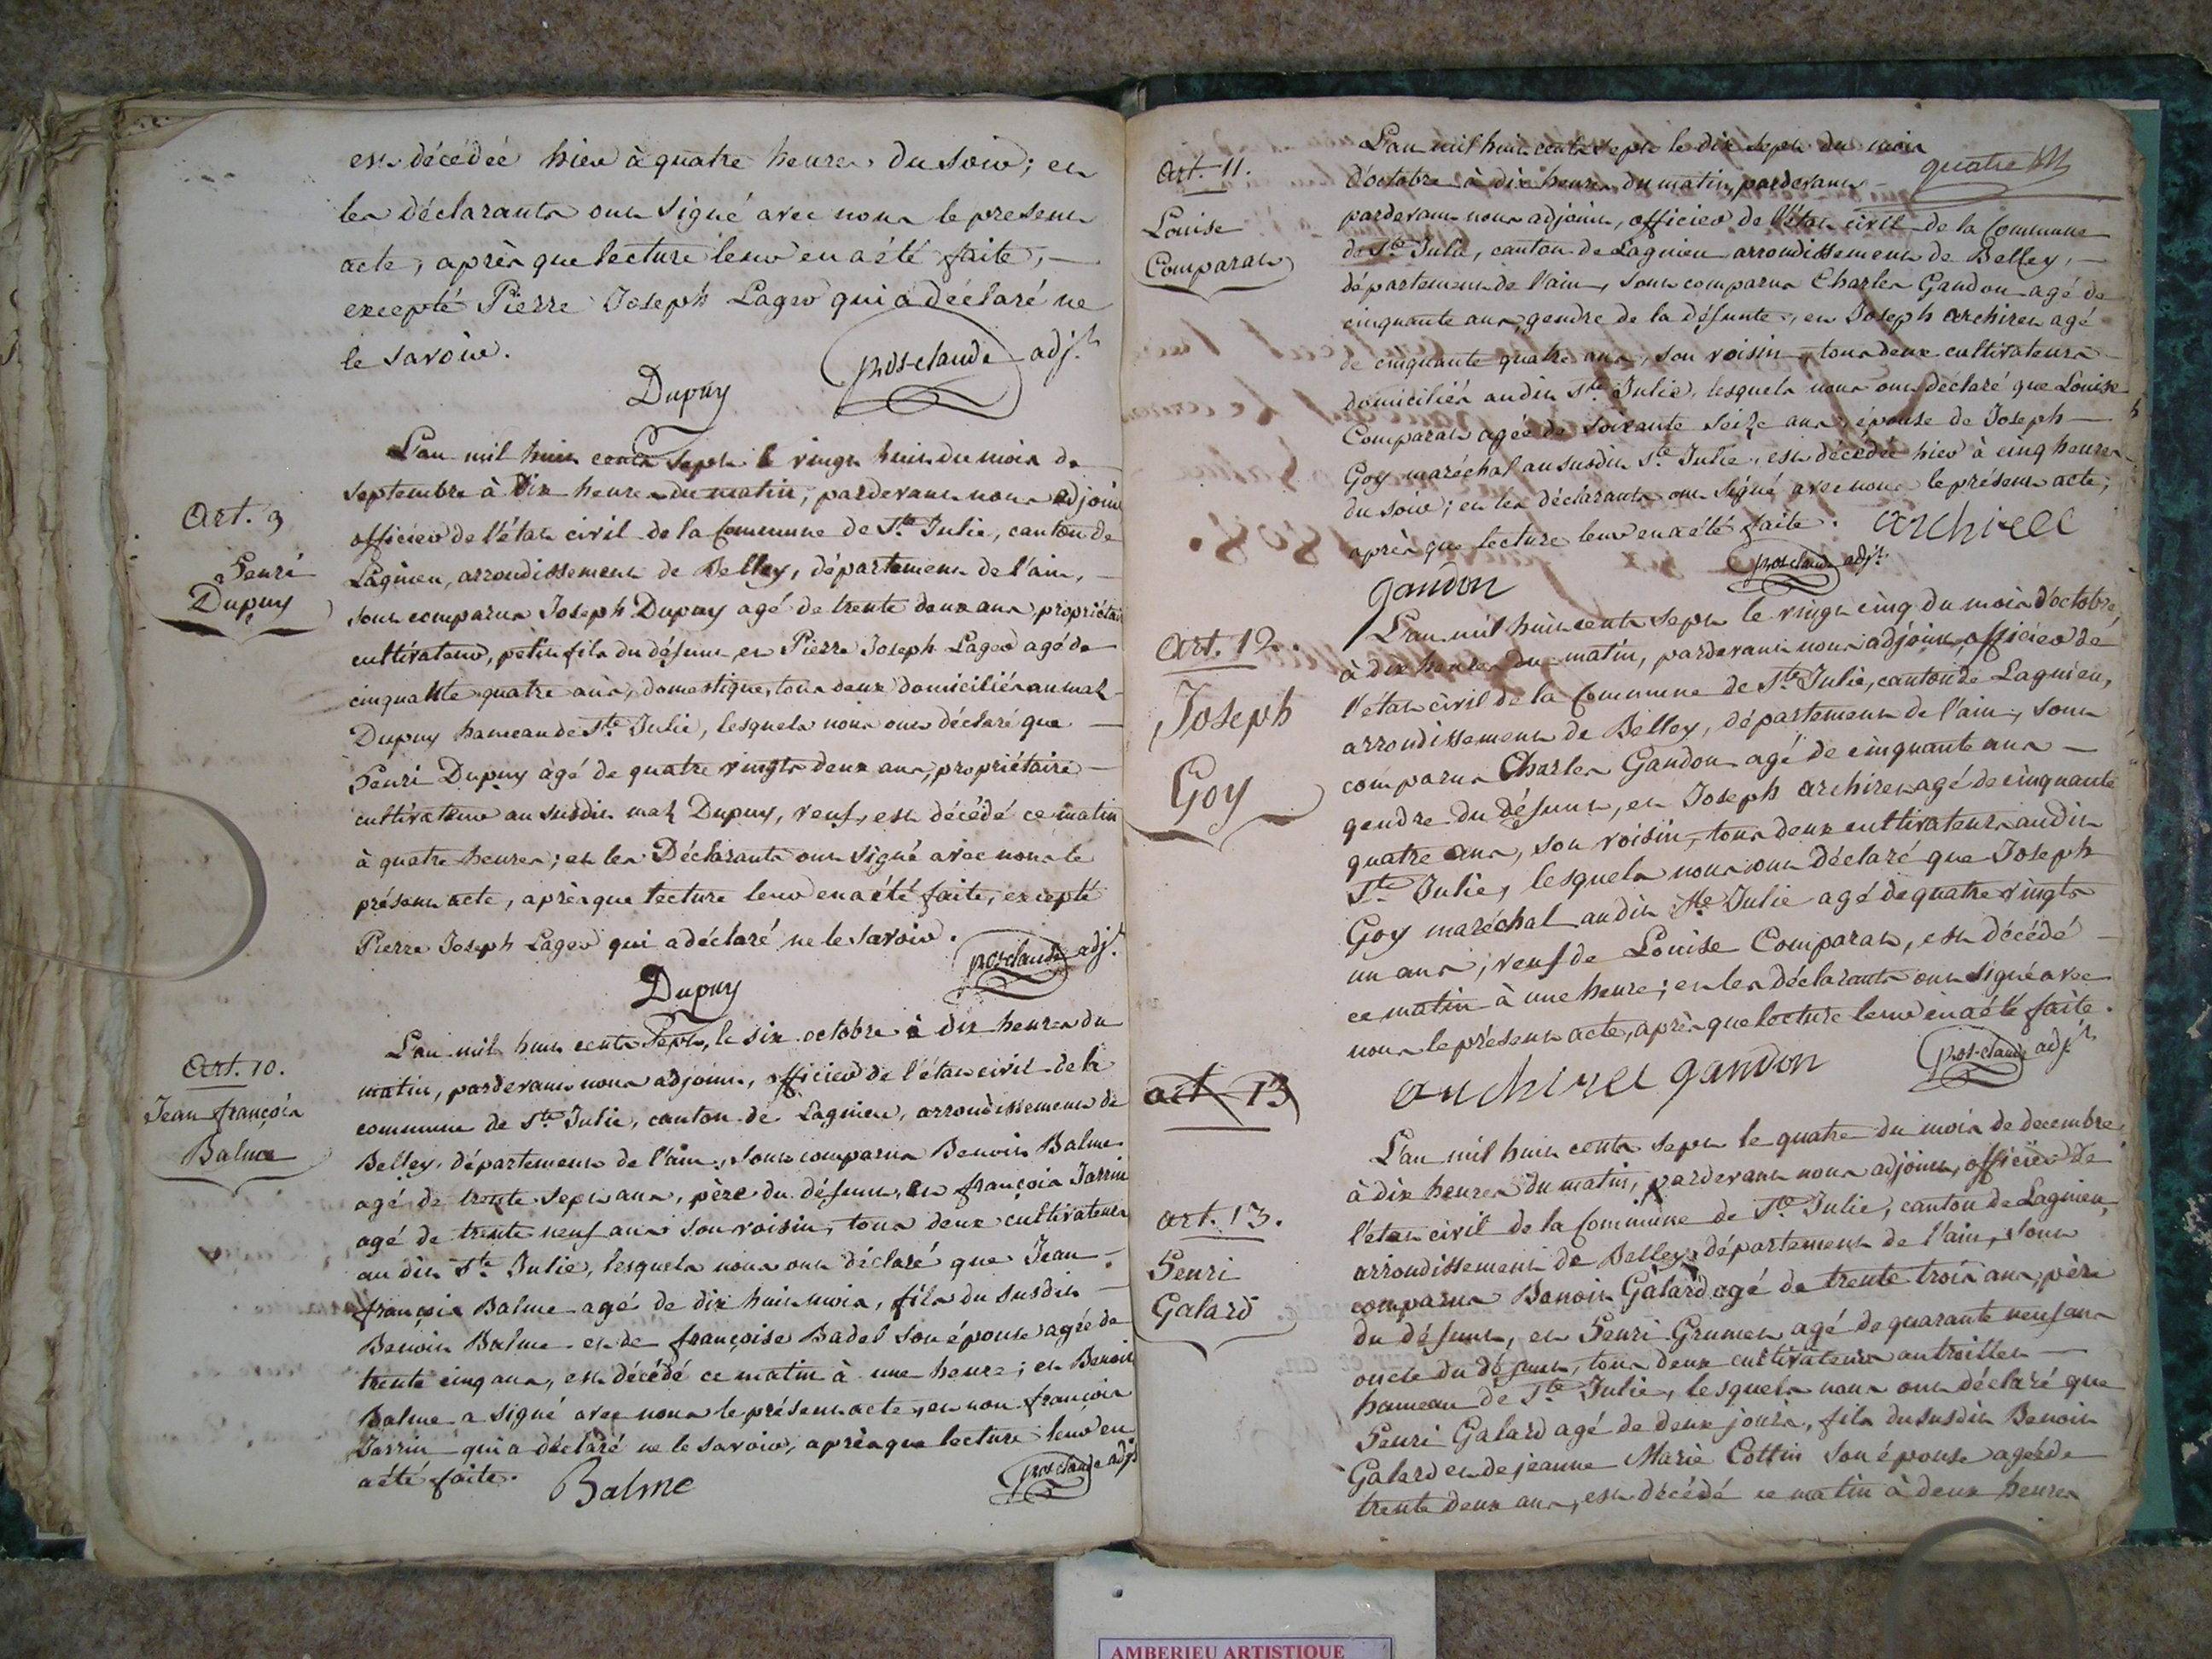 est décédée hier à quatre heures du soir; et
les déclarants ont signé avec nous le present
acte, après que lecture leur en a été faite, —
excepté Pierre Joseph Lager qui a déclaré ne
le savoir.
Dupuy
adj.t
L'an mil huit cents sept le vingt huit du mois de
Art. 9
Henri
Dupuy
septembre à dix heures du matin, pardevant nous adjoint
officier de l'état civil de la Commune de S.te Julie, canton de
Lagnieu, arrondissement de Belley, département de l'ain, —
sont comparus Joseph Dupuy agé de trente deux ans, propriétaire
cultivateur, petit fils du défunt, et Pierre Joseph Lager agé de
cinquante quatre ans, domestique, tous deux domiciliés au mas
Dupuy hameau de S.te Julie, lesquels nous ont déclaré que —
Henri Dupuy âgé de quatre vingts deux ans, propriétaire —
cultivateur au susdit mas Dupuy, veuf, est décédé ce matin
à quatre heures; et les Déclarants ont signé avec nous le
présent acte, après que lecture leur en a été faite, excepté
Pierre Joseph Lager qui a déclaré ne le savoir.
Dupuy
adj.t
Art. 10.
Jean françois
Balme
L'an mil huit cents sept, le six octobre à dix heures du
matin, pardevant nous adjoint, officier de l'état civil de la
commune de S.te Julie, canton de Lagnieu, arrondissement de
Belley, département de l'ain, sont comparus Benoit Balme
agé de trente sept ans, père du défunt, et françois Jarrin
agé de trente neuf ans son voisin, tous deux cultivateurs
au dit S.te Julie, lesquels nous ont déclaré que Jean —
françois Balme agé de dix huit mois, fils du susdit —
Benoit Balme et de françoise Badel son épouse agée de
trente cinq ans, est décédé ce matin à une heure; et Benoit
Balme a signé avec nous le présent acte, et non françois
Jarrin qui a déclaré ne le savoir, après que lecture leur en
a été faite.
Balme
adj.t
quatre
Art. 11.
Louise
Comparat
L'an mil huit cents sept le dix sept du mois
d'octobre à dix heures du matin, pardevant —
pardevant nous adjoint, officier de l'état civil de la Commune
de S.te Julie, canton de Lagnieu arrondissement de Belley, —
département de l'ain, sont comparus Charles Gandon agé de
cinquante ans, gendre de la défunte, et Joseph archiret agé
de cinquante quatre ans, son voisin, tous deux cultivateurs
domiciliés au dit S.te Julie, lesquels nous ont déclaré que Louise
Comparat agée de soixante seize ans, épouse de Joseph —
Goy maréchal au susdit S.te Julie, est décédée hier à cinq heures
du soir; et les déclarants ont signé avec nous le présent acte,
après que lecture leur en a été faite.
archirel
gandon
adj.t
Art. 12.
Joseph
Goy
L'an mil huit cents sept le vingt cinq du mois d'octobre,
à dix heures du matin, pardevant nous adjoint, officier de
l'état civil de la Commune de S.te Julie, canton de Lagnieu,
arrondissement de Belley, département de l'ain, sont
comparus Charles Gandon agé de cinquante ans —
gendre du défunt, et Joseph archiret agé de cinquante
quatre ans, son voisin, tous deux cultivateurs au dit
S.te Julie, lesquels nous ont déclaré que Joseph
Goy maréchal au dit S.te Julie agé de quatre vingts
un ans, veuf de Louise Comparat, est décédé —
ce matin à une heure; et les déclarants ont signé avec
nous le présent acte, après que lecture leur en a été faite.
archirel gandon
adj.t
act. 13
Art. 13.
Henri
Galard
L'an mil huit cents sept le quatre du mois de decembre
à dix heures du matin, pardevant nous adjoint, officier de
l'état civil de la Commune de S.te Julie, canton de Lagnieu,
arrondissement de Belley, département de l'ain, sont
comparus Benoit Galard agé de trente trois ans, père
du défunt, et Henri Grumet agé de quarante neuf ans
oncle du défunt, tous deux cultivateurs au troillet —
hameau de S.te Julie, lesquels nous ont déclaré que
Henri Galard agé de deux jours, fils du susdit Benoit
Galard et de jeanne Marie Cottin son épouse agée de
trente deux ans, est décédé ce matin à deux heures
AMBERIEU ARTISTIQUE